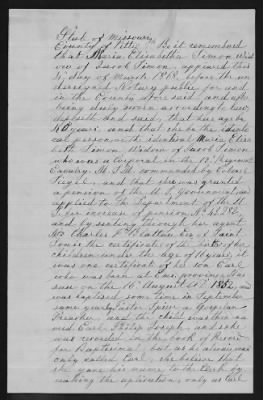 State of Missouri
County of Pettis } Be it remembered
that Maria Elizabetha Simon Wid
ow of Jacob Simon, appeared this
4th day of March 1868, before the un
dersigned Notary public for and
in the County aforesaid, and after
being duly sworn according to law,
deposeth and said, that her age be
40 years, and that she be the identi
cal person, the identical Maria Eliza
beth Simon Widow of Jacob Simon
who was a Corporal in the 10th Regiment
Cavalry M.S.M. commanded by Colonel
and that she was granted
a pension of the U.S. Government, and
applied to the Department of the U.
S. for increase of pension No.
and by sending through her agent
Mr Charles of Saint
Louis the certificates of the births of the
children under the age of 16 years, it
was one certificate of her son Carl
who was born at province
on the 16 August 1852, and
was baptized some time in September
same year, by a
Preacher, and the child was then na
med Carl Philip Joseph, and so he
was recorded in the book of Record
for Baptisms, but as he always was
only called Carl, she believes that
she gave his name to the Clerk by
making the application, only as Carl